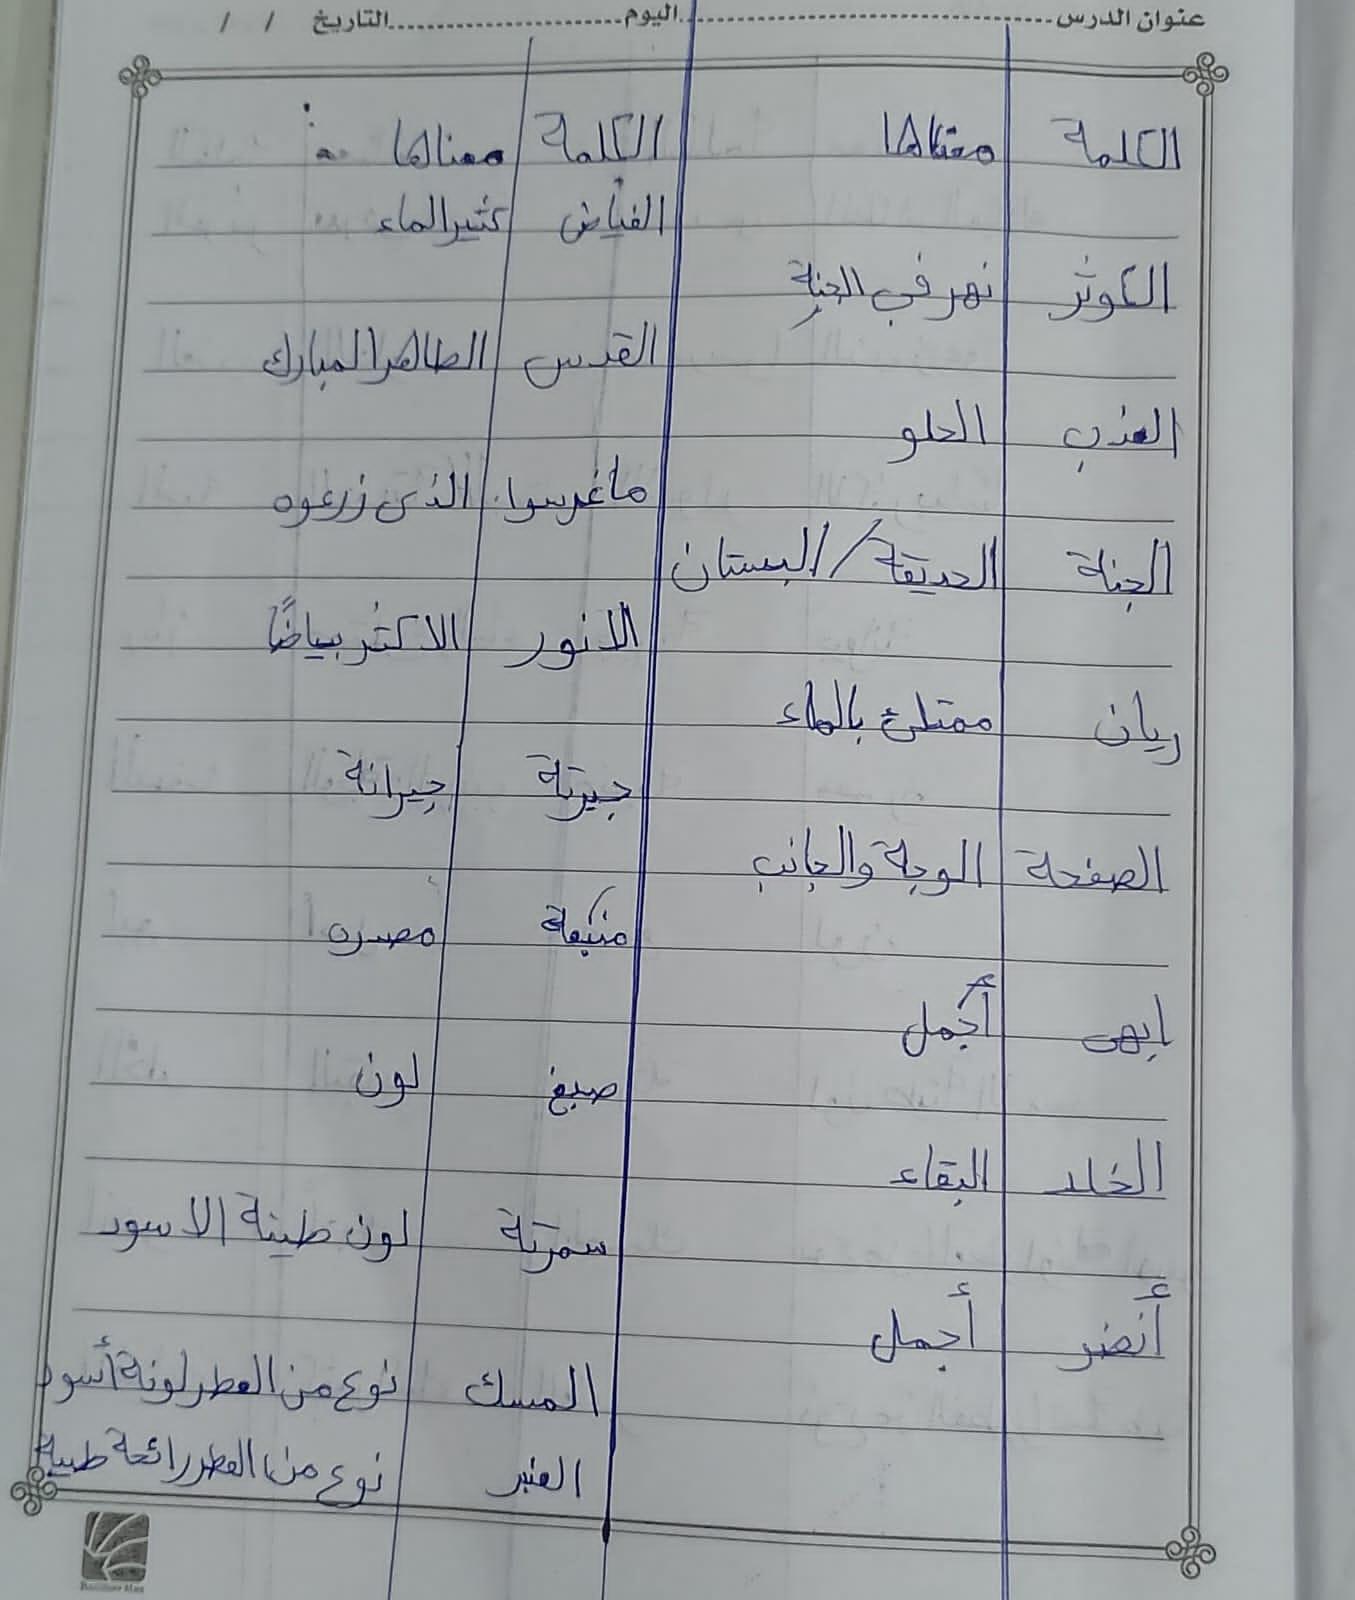 عنوان الدرس اليوم التاريخ / /
الكلمة معناها
الكوثر نهر في الجنة
العذب الحلو
الجنة الحديقة / البستان
ريان ممتلئ بالماء
الصفحة الوجة والجانب
ابهى أجمل
الخلد البقاء
أنضر أجمل
الكلمة معناها
الفياض كثير الماء
القدس الطاهر المبارك
ما غرسوا الذى زرعوه
الانور الاكثر بياضًا
جيرتة جيرانة
منبعة مصدره
صبغ لون
سمرتة لون طينة الاسود
المسك نوع من العطر لونة أسود
العنبر نوع من العطر رائحة طيبة